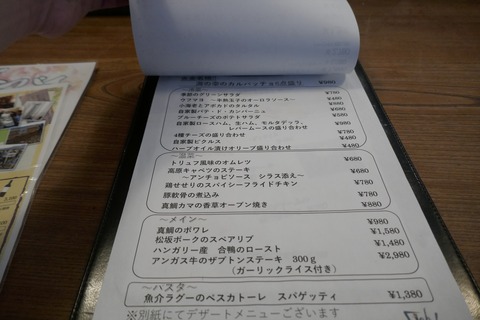 海の幸のカルパッチョの盛り ¥980
季節のグリーンサラダ ¥780
ウフマヨ ～半熟玉子のオーロラソース～ ¥480
小海老とアボカドのタルタル ¥680
自家製パテ・ド・カンパーニュ ¥680
ブルーチーズのポテトサラダ ¥580
自家製ロースハム、生ハム、モルタデッラ、 ¥980
レバームースの盛り合わせ
4種チーズの盛り合わせ ¥780
自家製ピクルス ¥480
ハーブオイル漬けオリーブ盛り合わせ ¥480
～温菜～
トリュフ風味のオムレツ ¥680
高原キャベツのステーキ ¥680
～アンチョビソース シラス添え～
鶏せせりのスパイシーフライドチキン ¥780
豚軟骨の煮込み ¥780
真鯛カマの香草オーブン焼き ¥880
～メイン～
真鯛のポワレ ¥980
松坂ポークのスペアリブ ¥1,580
ハンガリー産 合鴨のロースト ¥1,480
アンガス牛のザブトンステーキ 300g ¥2,980
(ガーリックライス付き)
～パスタ～
魚介ラグーのペスカトーレ スパゲッティ ¥1,380
※別紙にてデザートメニューございます